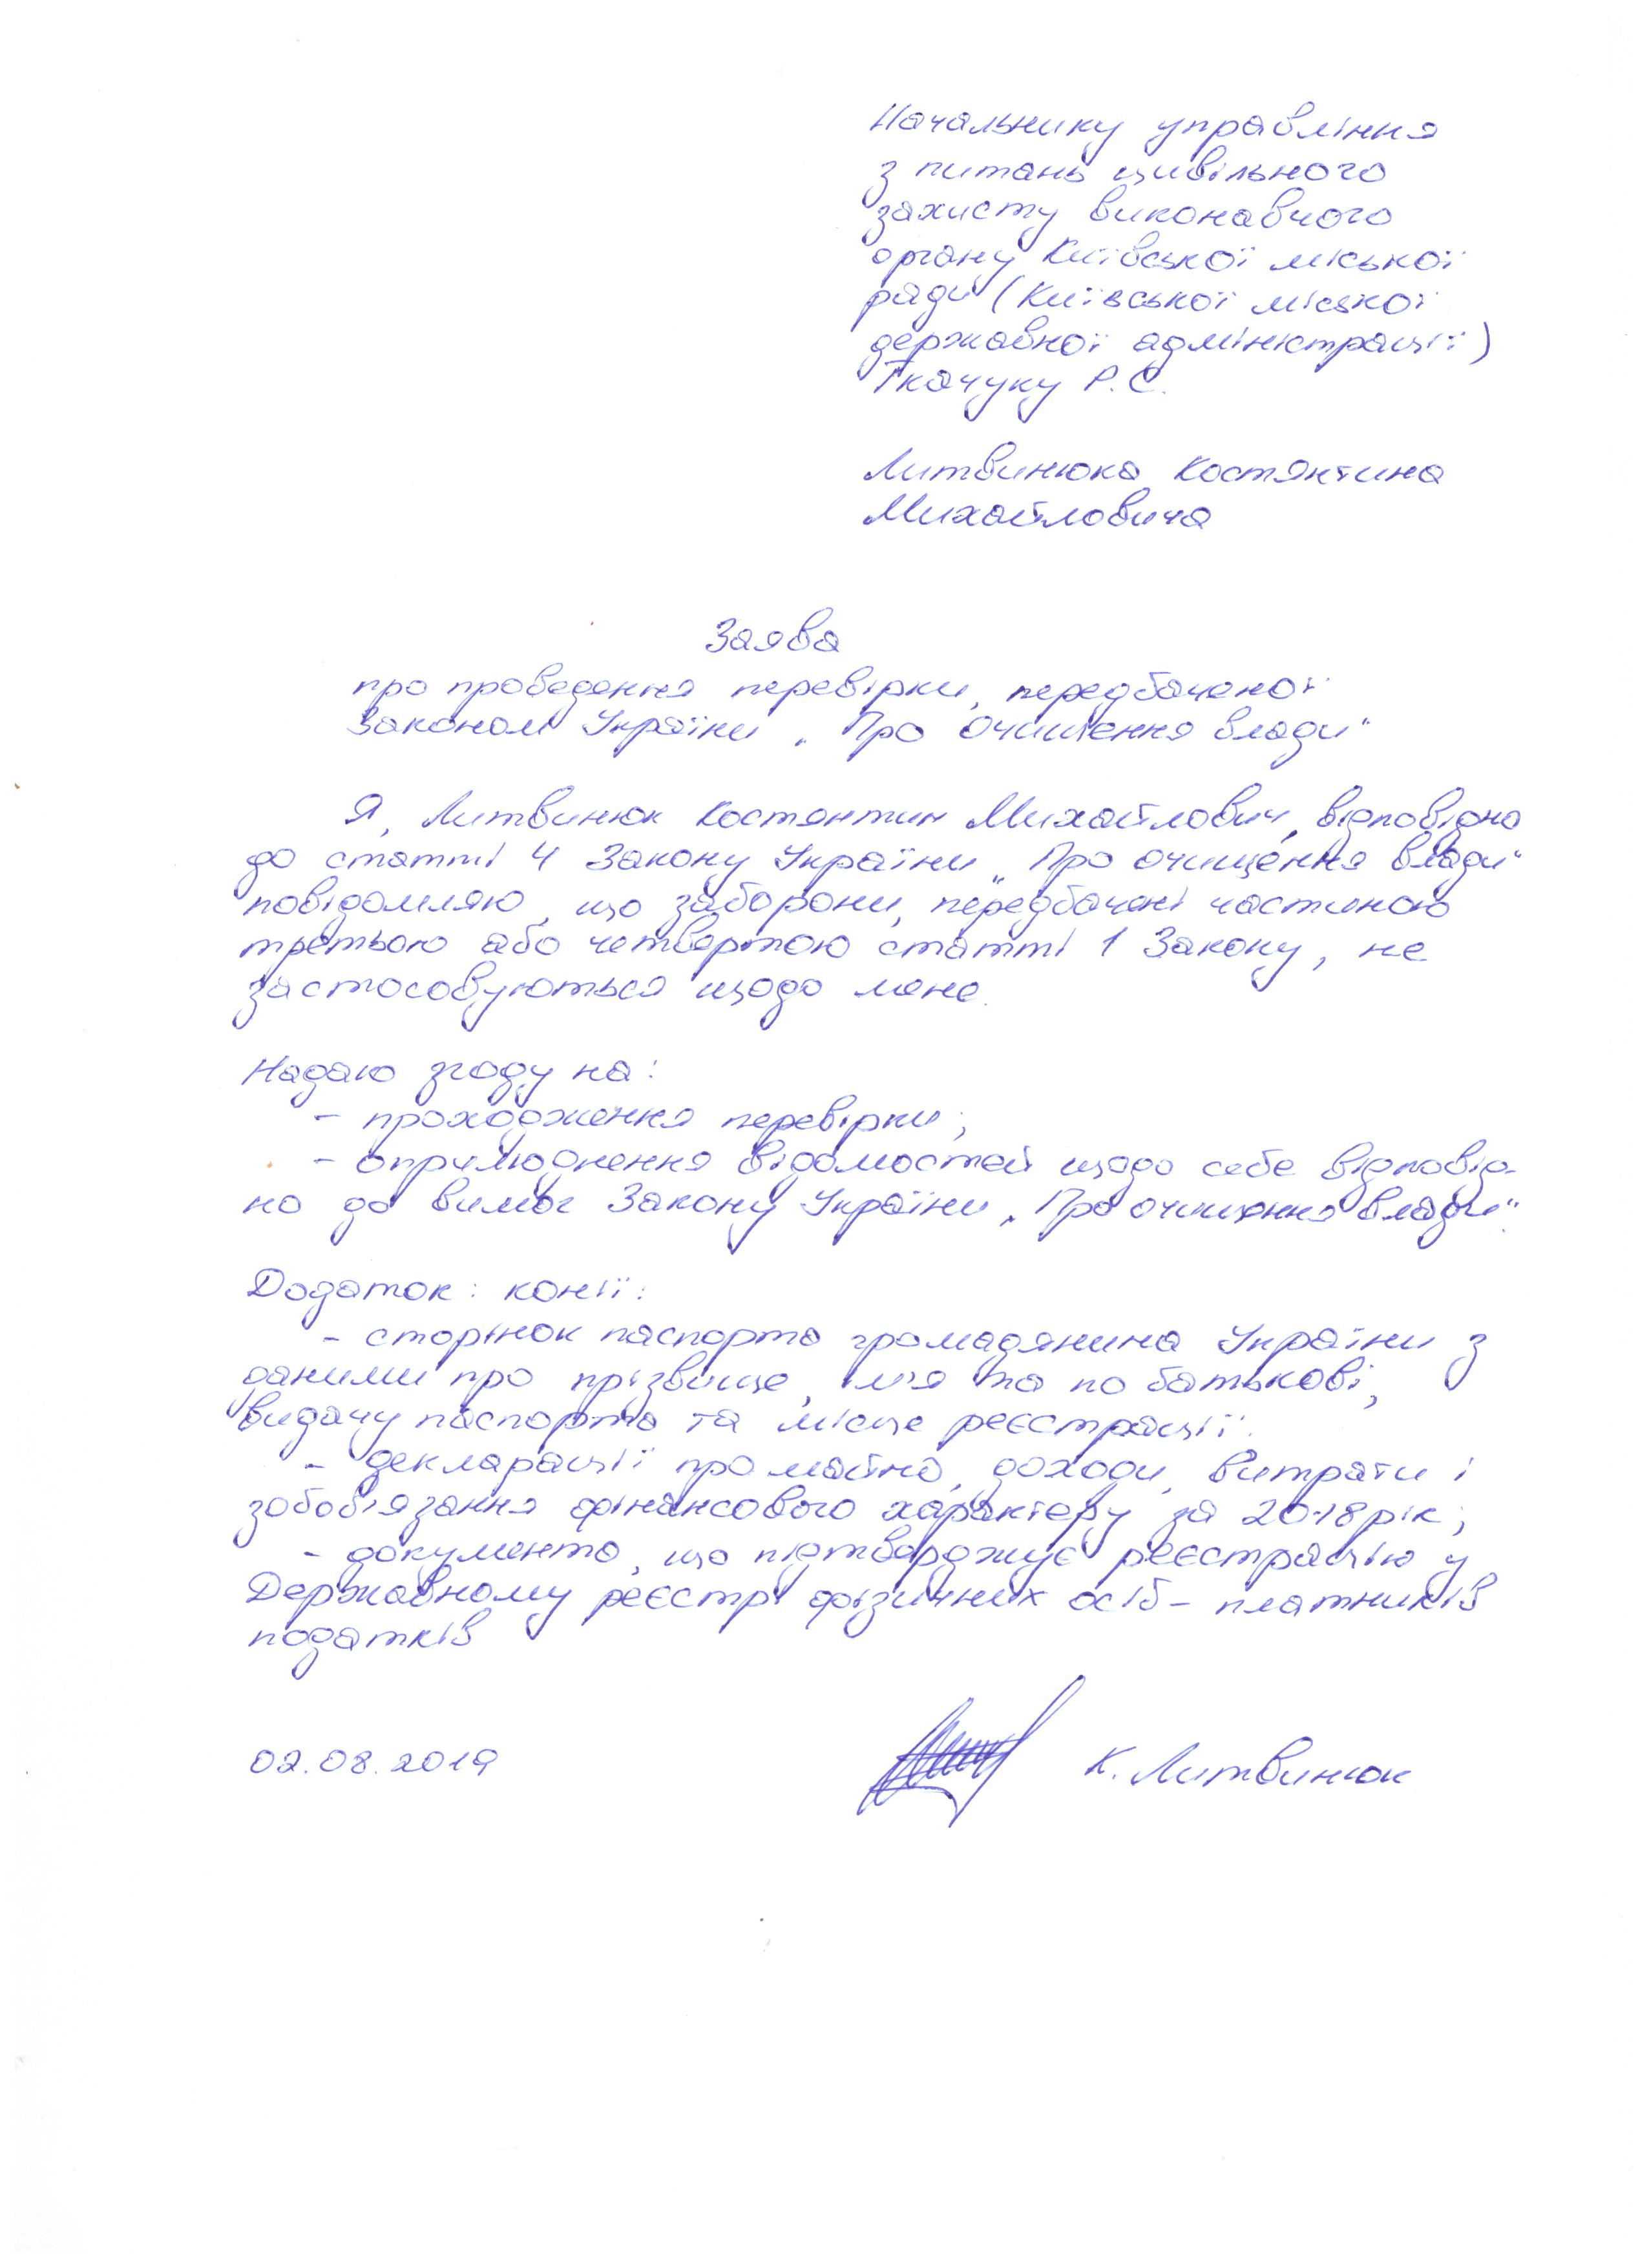 Начальнику управління
з питань цивільного
захисту виконавчого
органу Київської міської
ради (Київської міської
державної адміністрації)
Ткачуку Р.С.
Литвинюка Костянтина
Михайловича
Заява
про проведення перевірки, передбаченої
Законом України „Про очищення влади"
Я, Литвинюк Костянтин Михайлович, відповідно
до статті 4 Закону України „Про очищення влади"
повідомляю, що заборони, передбачені частиною
третьою або четвертою статті 1 Закону, не
застосовуються щодо мене.
Надаю згоду на:
- проходження перевірки;
- оприлюднення відомостей щодо себе відповід-
но до вимог Закону України „Про очищення влади".
Додаток: копії:
- сторінок паспорта громадянина України з
даними про прізвище, ім'я та по батькові,
видачу паспорта та місце реєстрації.
- декларації про майно, доходи, витрати і
зобов'язання фінансового характеру за 2018 рік;
- документа, що підтверджує реєстрацію у
Державному реєстрі фізичних осіб - платників
податків
02.08.2019 К. Литвинюк